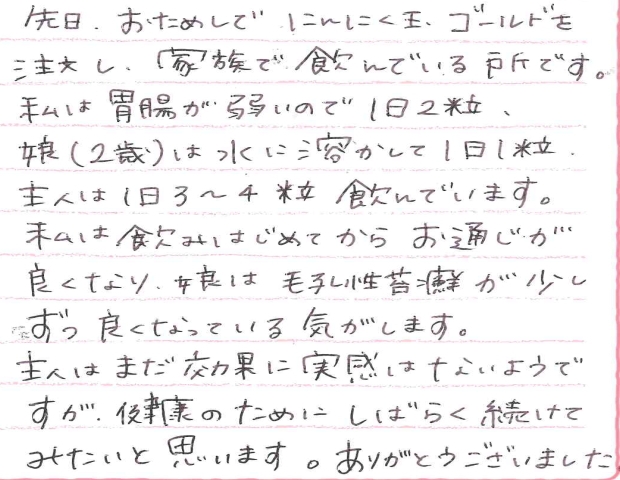 先日、おためしで にんにく玉、ゴールドを
注文し、家族で 飲んでいる所です。
私は 胃腸が 弱いので 1日2粒、
娘(2歳)は 水に溶かして 1日1粒、
主人は 1日3〜4粒 飲んでいます。
私は 飲みはじめてから お通じが
良くなり、娘は 毛孔性苔癬が 少し
ずつ 良くなっている 気がします。
主人は まだ 効果に 実感はないようで
すが、健康の ために しばらく 続けて
みたいと 思います。ありがとうございました